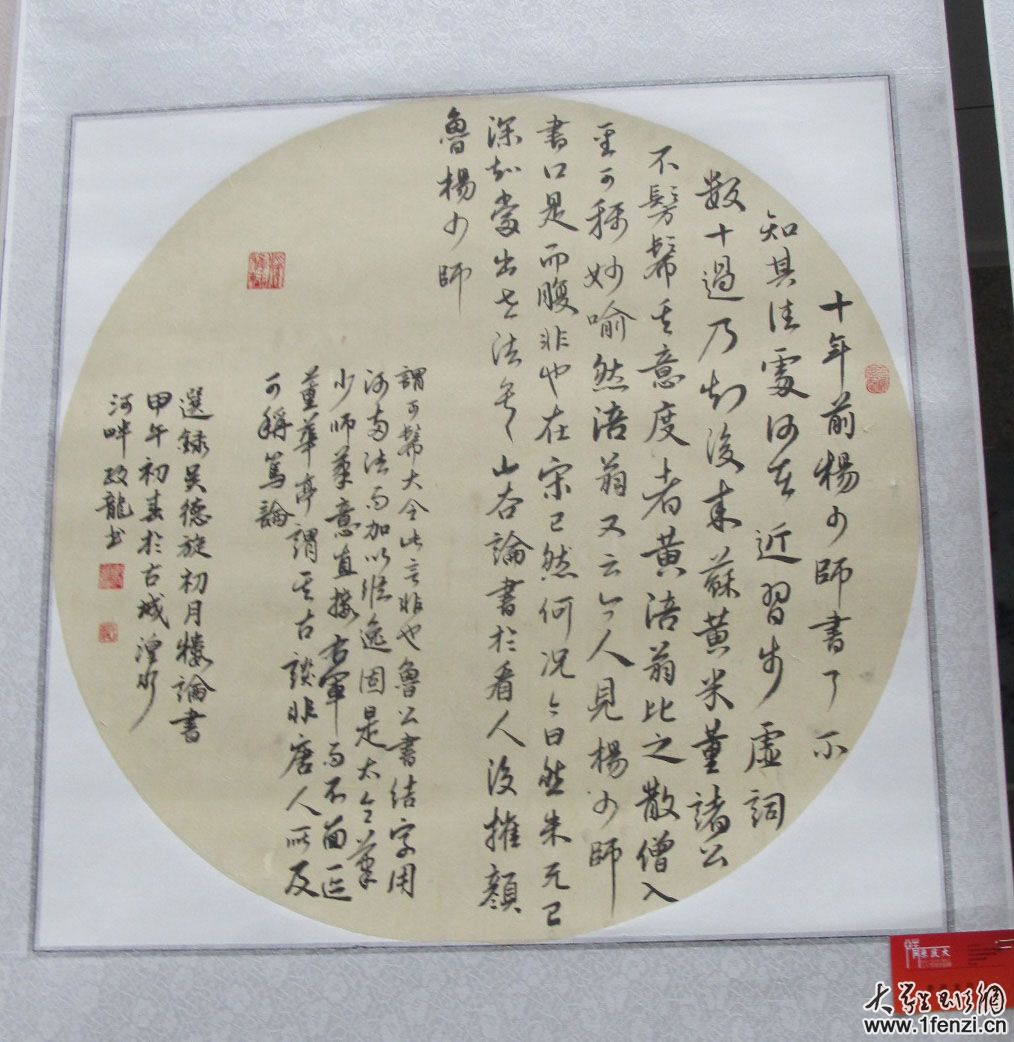 十年前楊少師書了不
知其佳處何在近習步虛詞
數十過乃知後來蘇黃米董諸公
不髣髴其意度者黃涪翁比之散僧入
聖可稱妙喻然涪翁又云今人見楊少師
書口是而腹非也在宋已然何況今日然朱元已
深知當出世法矣山谷論書於看人後推顏
魯楊少師
謂可髴大令此言非也魯公書結字用
河南法而加以縱逸固是大令筆
少師筆意直接右軍而不面
董華亭謂其古談非唐人所及
可稱篤論
選錄吳德旋初月樓論書
甲午初春於古城湟水
河畔政龍書
www.1fenzi.cn